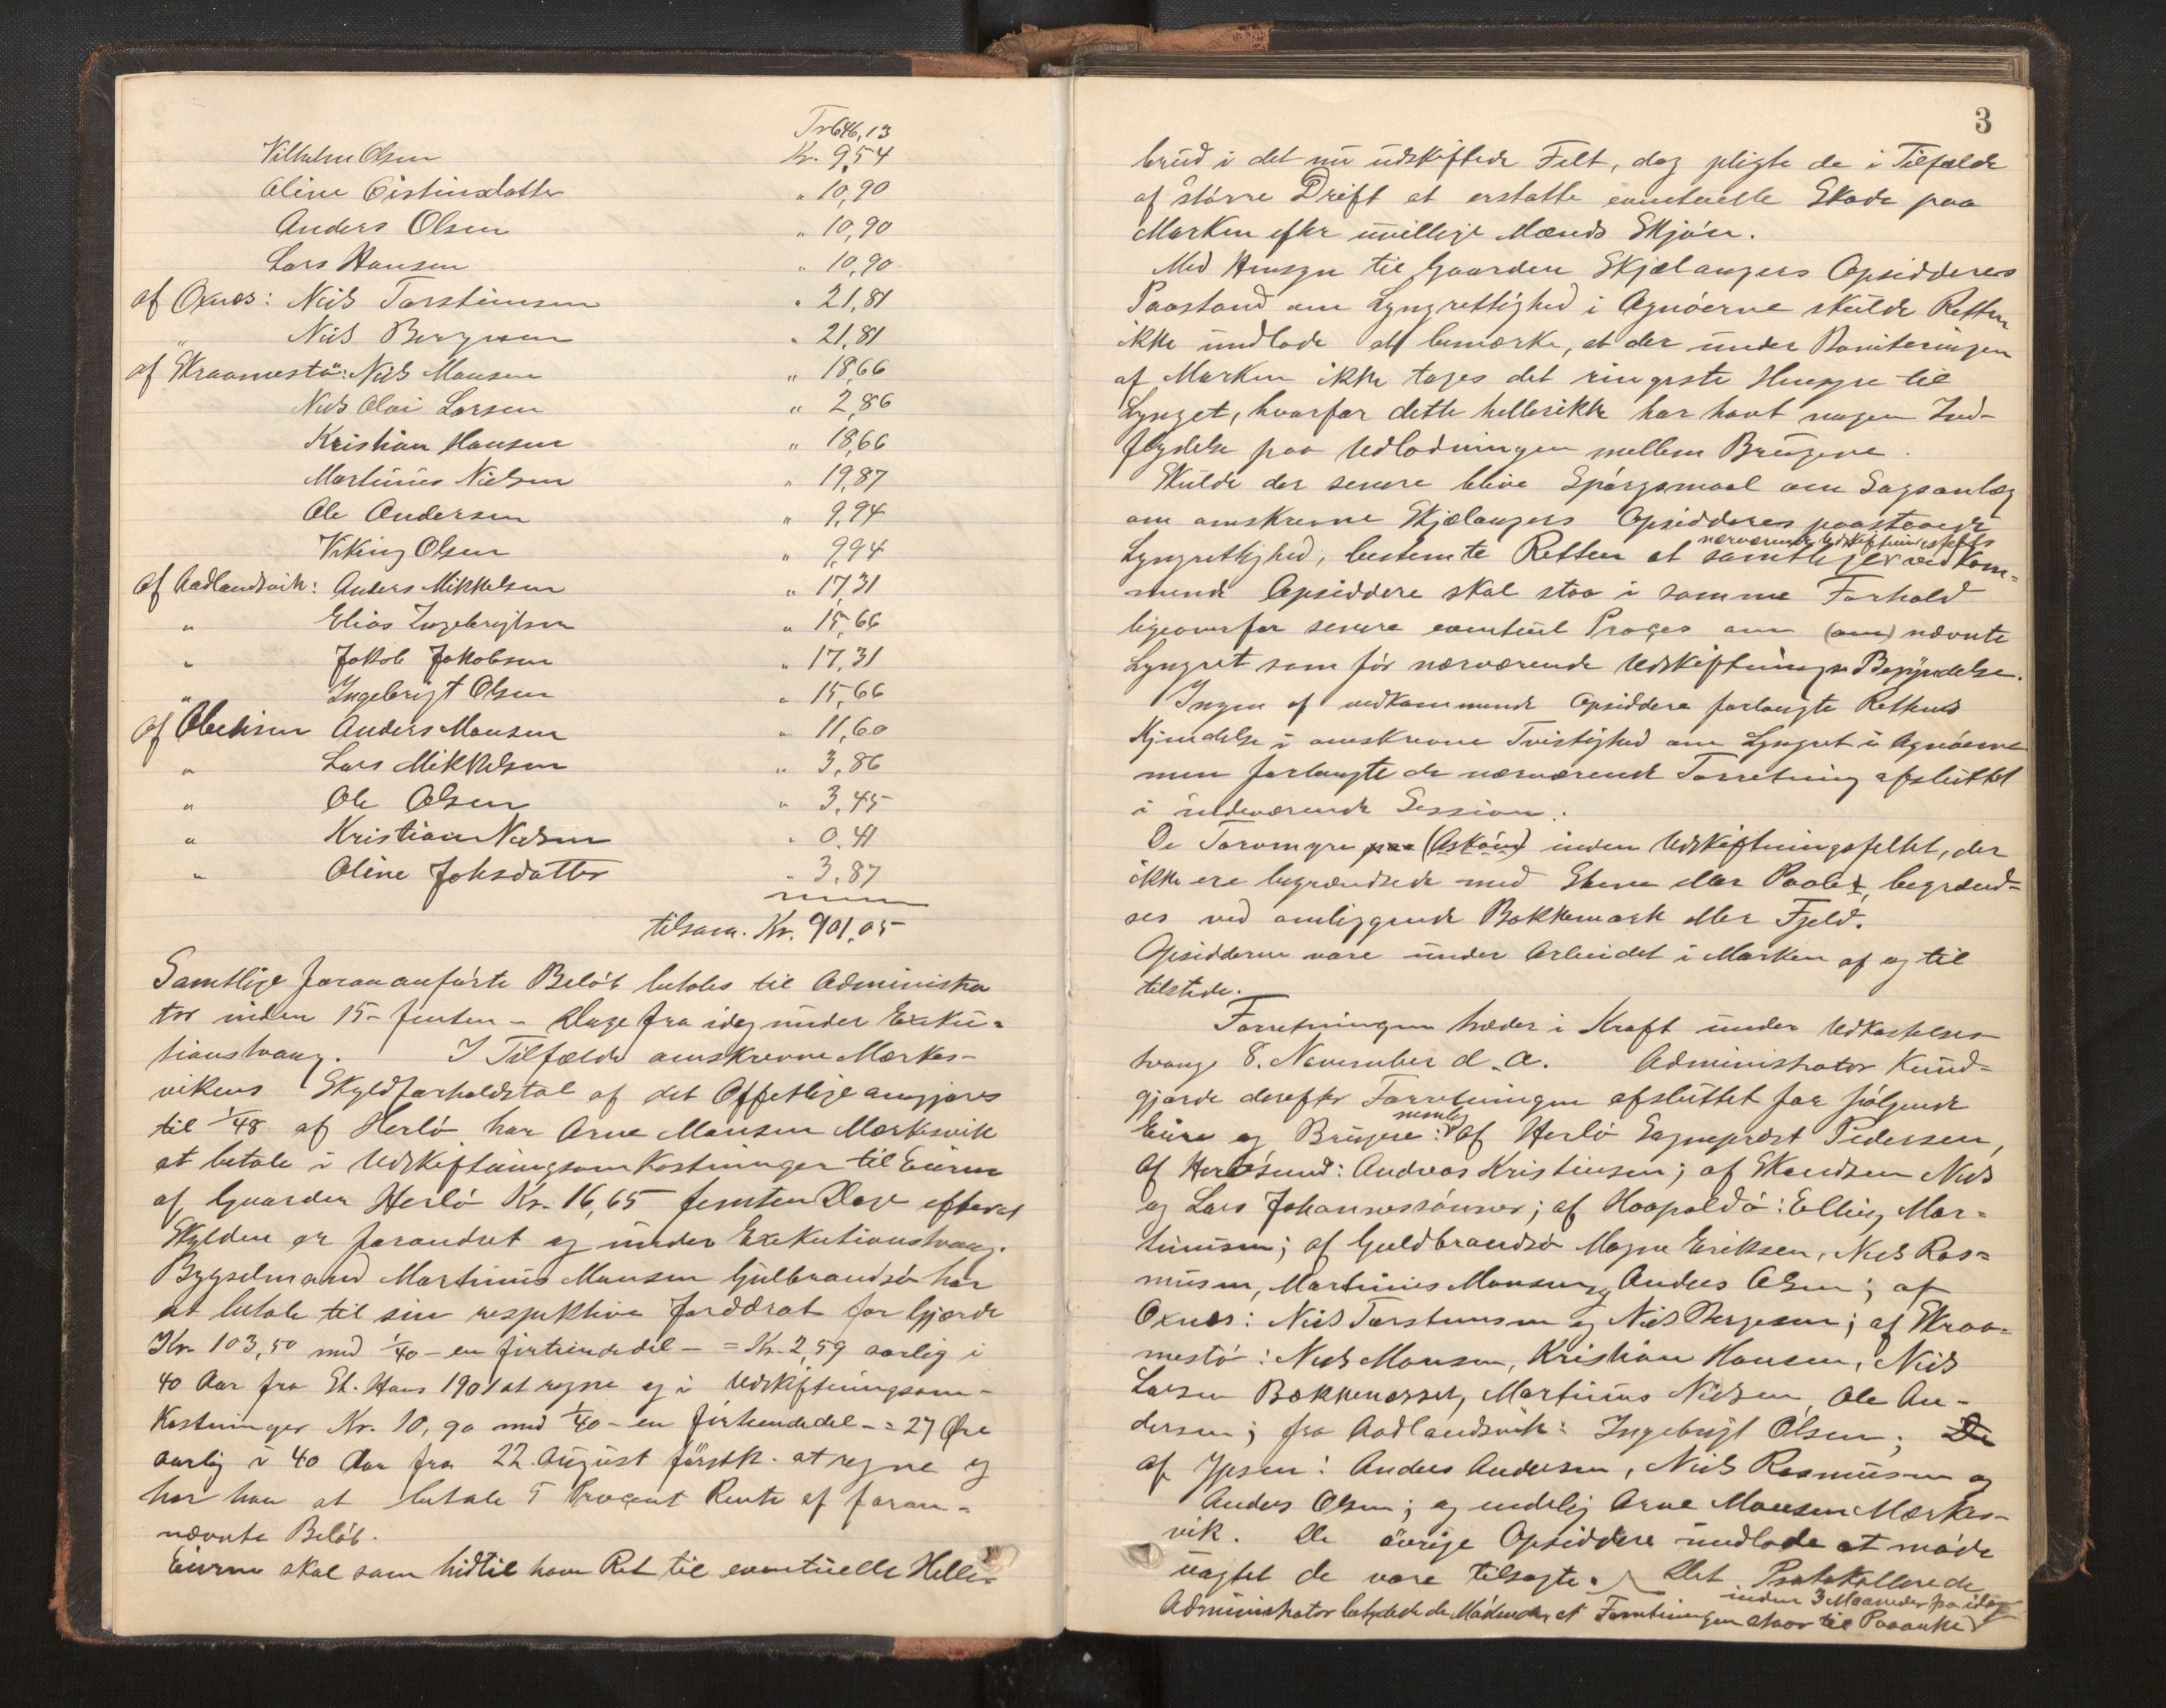 Tr 646,13
Vilhelm Olsen Kr. 9,54
Oline Østinsdatter " 10,90
Anders Olsen " 10,90
Lars Hansen " 10,90
af Oxnes: Nils Torsteinsen " 21,81
" Nils Børgesen " 21,81
af Skraamestø: Nils Monsen " 18,66
Nils Olai Larsen " 2,86
Kristian Hansen " 18,66
Martinus Nielsen " 19,87
Ole Andersen " 9,94
Viking Olsen " 9,94
af Aadlandsvik: Anders Mikkelsen " 17,31
" Elias Ingebrigtsen " 15,66
" Jakob Jakobsen " 17,31
" Ingebrigt Olsen " 15,66
af Anders Monsen " 11,60
" Lars Mikkelsen " 3,86
" Ole Olsen " 3,45
" Kristian Nielsen " 0,41
" Oline Johsdatter " 3,87
tilsam. Kr. 901,05
Samtlige forananførte Beløb betales til Administra
tor inden 15 - femten - Dage fra idag under Exeku-
tionstvang. I Tilfælde omskrevne Mærkes-
vikens Skyldforholdstal af det Offetlige omgjøres
til 1/48 af Herlø har Arne Monsen Mærkesvik
at betale i Udskiftningsomkostninger til Eierne
af Gaarden Herlø Kr. 16,65 femten Dage efterat
Skylden er forandret og under Exekutionstvang.
Bygselmand Martinus Monsen Gulbrandsø har
at betale til sin respektive Jorddrot for Gjærde
Kr. 103,50 med 1/40 - en firtiendedel - = Kr. 2,59 aarlig i
40 Aar fra St. Hans 1901 at regne og i Udskiftningsom-
kostninger Kr. 10,90 med 1/40 - en firtiendedel - = 27 Øre
aarlig i 40 Aar fra 22 August førstk. at regne og
har han at betale 5 Procent Rente af foran-
nævnte Beløb.
Eierne skal som hidtil have Ret til eventuelle Helle-
3
brud i det nu udskiftede Felt, dog pligte de i Tilfælde
af større Drift at erstatte eventuelle Skade paa
Marken efter uvillige Mænds Skjøn.
Med Hensyn til Gaarden Skjælangers Opsidderes
Paastand om Lyngrettighed i Agnøerne skulde Retten
ikke undlade at bemærke, at der under Boniteringen
af Marken ikke toges det ringeste Hensyn til
Lynget, hvorfor dette hellerikke har havt nogen Ind-
flydelse paa Udlodningen mellem Brugene.
Skulde der senere blive Spørgsmaal om Sagsanlæg
om omskrevne Skjælangers Opsidderes paastaaede
nærværende Udskiftningsfelts
Lyngrettighed, bestemte Retten at samtlige vedkom-
mende Opsiddere skal staa i samme Forhold
ligeoverfor senere eventuel Proces om (om) nævnte
Lyngret som før nærværende Udskiftnings Begyndelse.
Ingen af vedkommende Opsiddere forlangte Rettens
Kjendelse i omskrevne Tvistighed om Lyngret i Agnøerne
men forlangte de nærværende Forretning afsluttet
i indeværende Session.
De Torvmyre paa (Askøen) inden Udskiftningsfeltet, der
ikke ere begrændsede med Stene eller Pæler, begrænd-
ses ved omliggende Bakkemark eller Fjeld.
Opsidderne vare under Arbeidet i Marken af og til
tilstede.
Forretningen træder i Kraft under Udkastelses-
tvang 8. November d. A. Administrator kund-
gjorde derefter Forretningen afsluttet for følgende
nemlig
Eiere og Brugere: af Herlø Sogneprest Pedersen,
af Herløsund: Andreas Kristensen; af Skandsen Nils
og Lars Johannessønner; af Haapoldø: Elling Mar-
tinusen; af Guldbrandsø Mogne Eriksen, Nils Ras-
musen, Martinus Monsen og Anders Olsen; af
Oxnes: Nils Torsteinsen og Nils Børgesen; af Skraa-
mestø: Nils Monsen, Kristian Hansen, Nils
Larsen Bakkenesset, Martinus Nielsen, Ole An-
dersen; fra Aadlandsvik: Ingebrigt Olsen; De
af Ypsen: Anders Andersen, Nils Rasmusen og
Anders Olsen; og endelig Arne Monsen Mærkes-
vik. De øvrige Opsiddere undlode at møde
uagtet de vare tilsagte. Det Protokollerede
inden 3 Maaneder fra idag
Administrator betydede de Mødende, at Forretningen staar til Paaanke